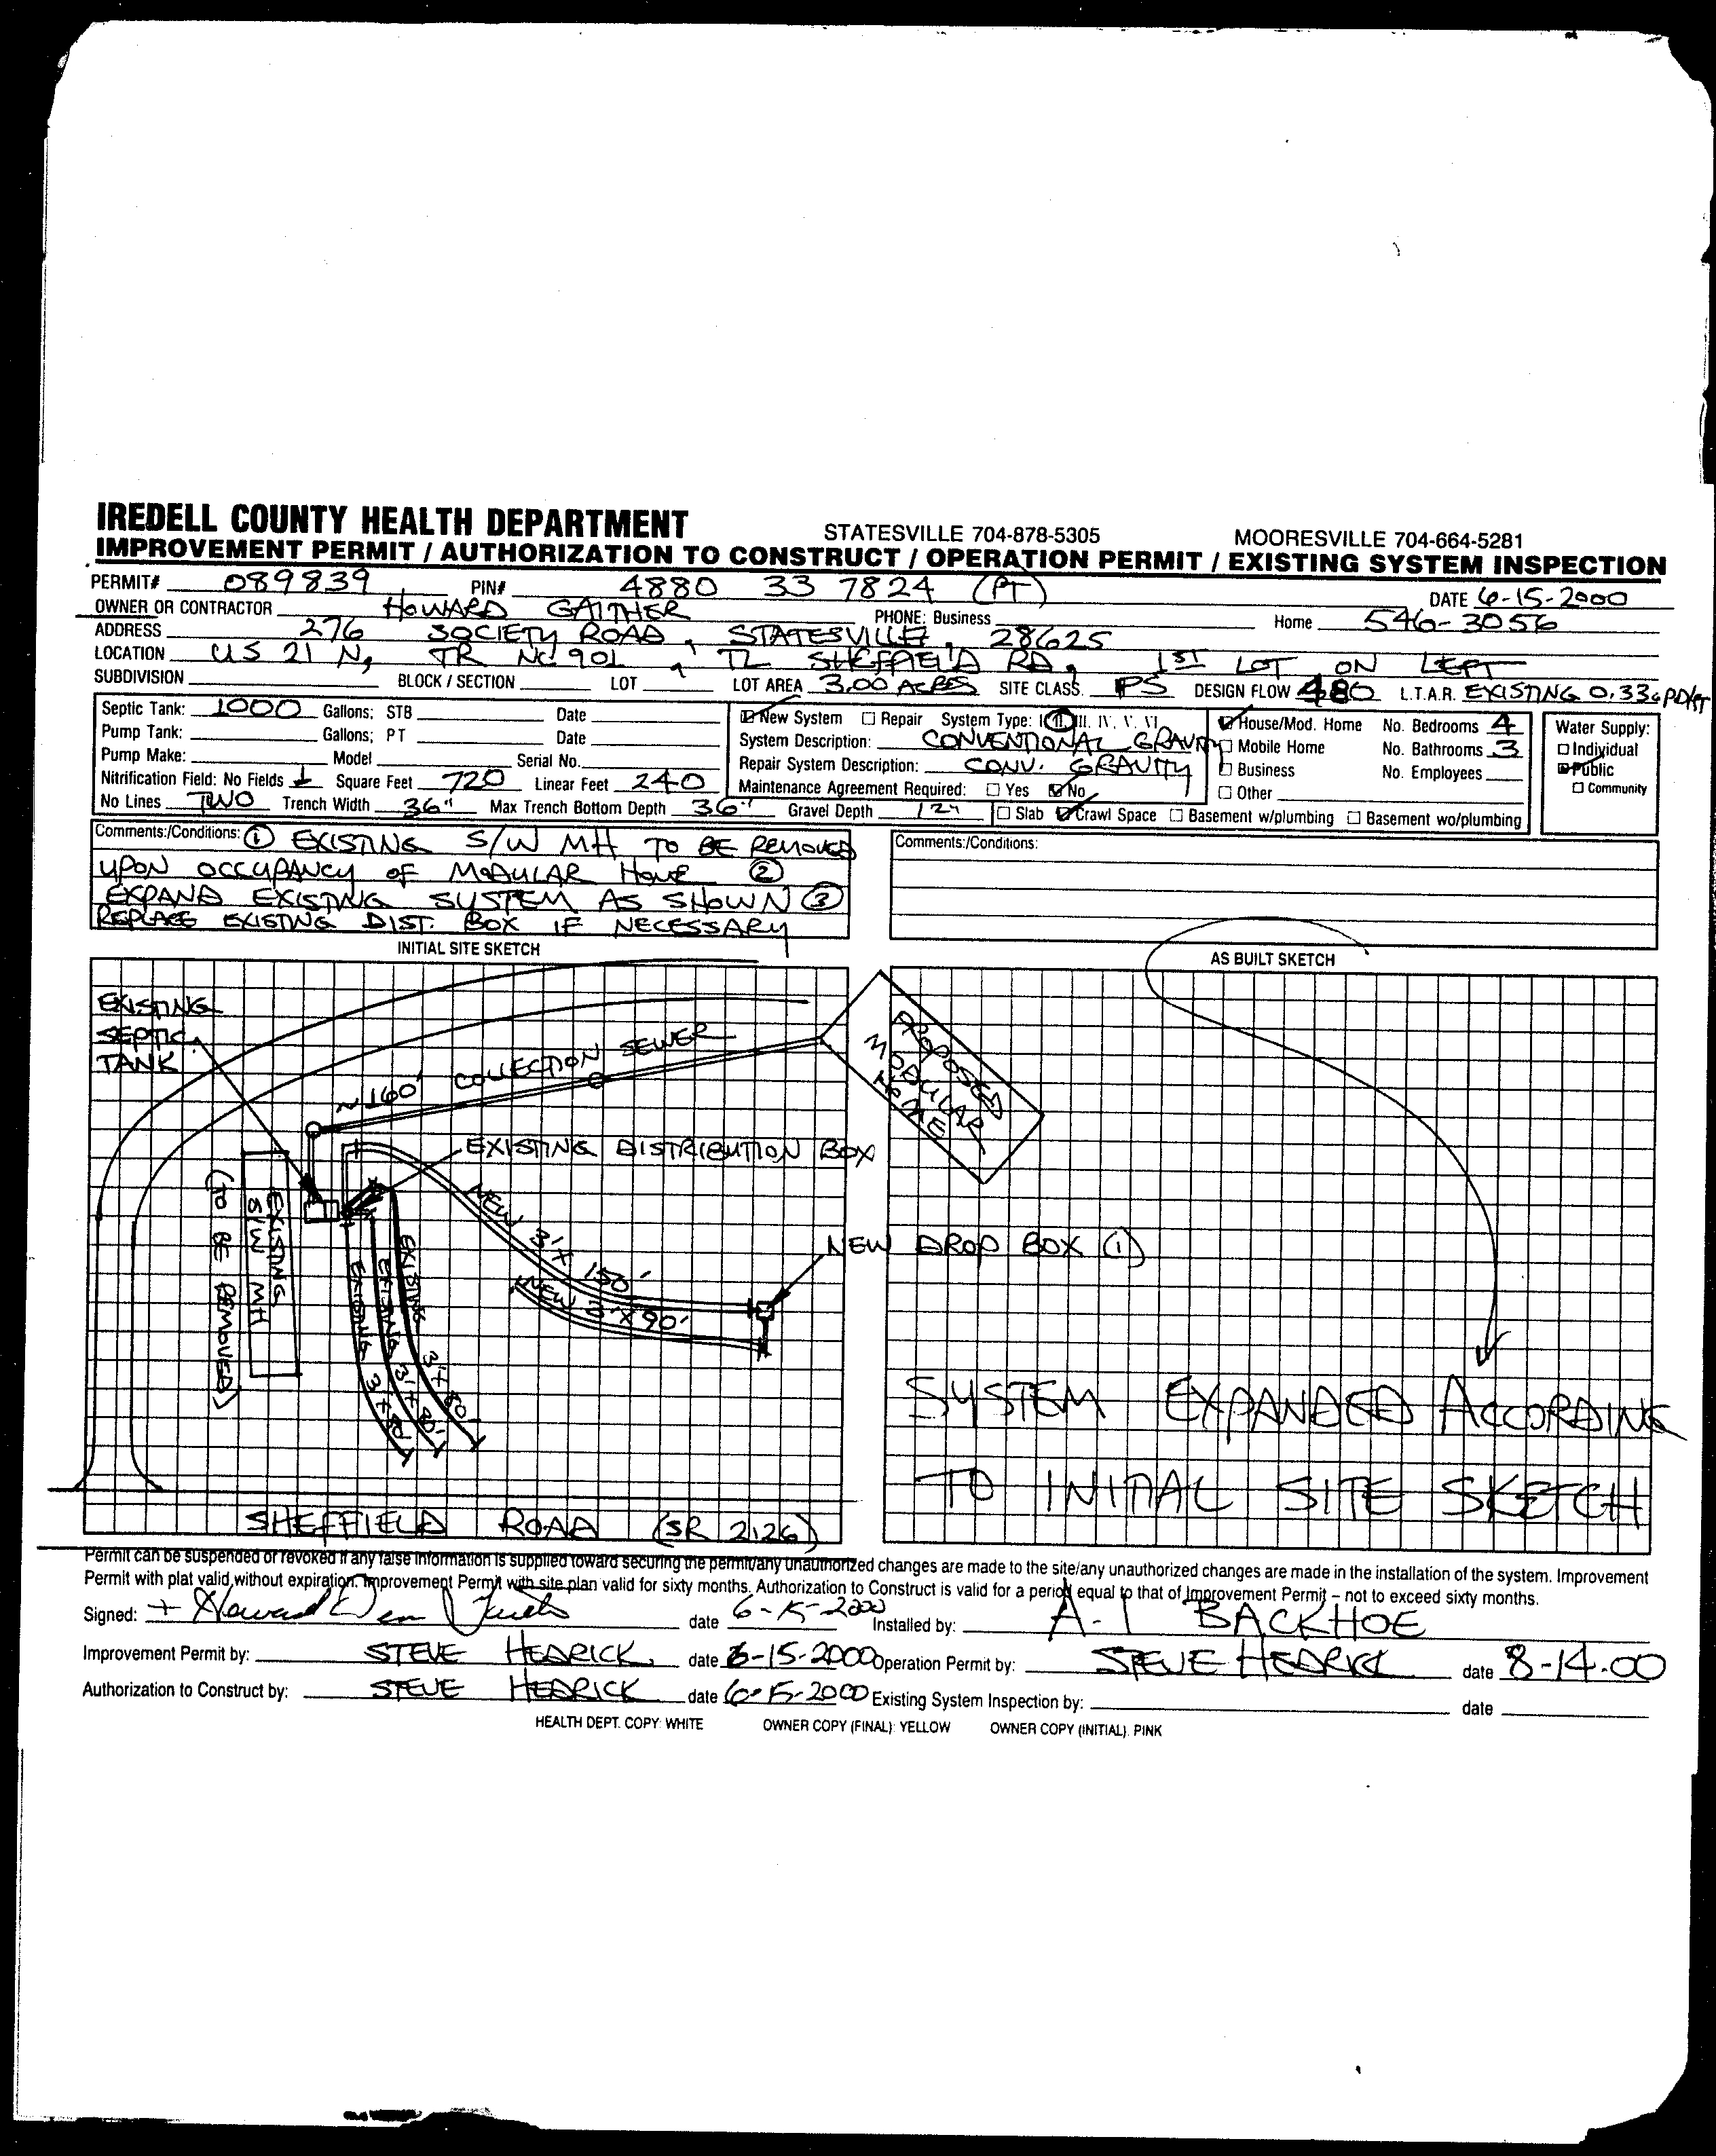 IREDELL COUNTY HEALTH DEPARTMENT STATESVILLE 704-878-5305 MOORESVILLE 704-664-5281
IMPROVEMENT PERMIT / AUTHORIZATION TO CONSTRUCT / OPERATION PERMIT / EXISTING SYSTEM INSPECTION
PERMIT# 089839 PIN# 4880 33 7824 (PT) DATE 6-15-2000
OWNER OR CONTRACTOR HOWARD GAITHER PHONE: Business Home 546-3056
ADDRESS 276 SOCIETY ROAD, STATESVILLE, 28625
LOCATION US 21 N, TR NC 901, TL SHEFFIELD RD, 1ST LOT ON LEFT
SUBDIVISION BLOCK / SECTION LOT LOT AREA 3.00 ACRES SITE CLASS. PS DESIGN FLOW 480 L.T.A.R. EXISTING 0.33 GPD/FT
Septic Tank: 1000 Gallons; STB Date
Pump Tank: Gallons; PT Date
Pump Make: Model Serial No.
Nitrification Field: No Fields 1 Square Feet 720 Linear Feet 240
No Lines TWO Trench Width 36" Max Trench Bottom Depth 36" Gravel Depth 12"
New System Repair System Type: I II III. IV. V. VI
System Description: CONVENTIONAL GRAVITY
Repair System Description: CONV. GRAVITY
Maintenance Agreement Required: Yes No
Slab Crawl Space Basement w/plumbing Basement wo/plumbing
House/Mod. Home No. Bedrooms 4
Mobile Home No. Bathrooms 3
Business No. Employees
Other
Water Supply:
Individual
Public
Community
Comments:/Conditions: ① EXISTING S/W MH TO BE REMOVED
UPON OCCUPANCY OF MODULAR HOME ②
EXPAND EXISTING SYSTEM AS SHOWN ③
REPLACE EXISTING DIST. BOX IF NECESSARY
Comments:/Conditions:
INITIAL SITE SKETCH
EXISTING
SEPTIC
TANK
~160' COLLECTION SEWER
PROPOSED
MODULAR
HOME
EXISTING DISTRIBUTION BOX
EXISTING
S/W MH
(TO BE REMOVED)
NEW 3' X 150'
NEW 3' X 90'
NEW DROP BOX (1)
EXISTING 3' X 80'
EXISTING 3' X 80'
EXISTING 3' X 80'
SHEFFIELD ROAD (SR 2126)
AS BUILT SKETCH
SYSTEM EXPANDED ACCORDING
TO INITIAL SITE SKETCH
Permit can be suspended or revoked if any false information is supplied toward securing the permit/any unauthorized changes are made to the site/any unauthorized changes are made in the installation of the system. Improvement
Permit with plat valid without expiration. Improvement Permit with site plan valid for sixty months. Authorization to Construct is valid for a period equal to that of Improvement Permit – not to exceed sixty months.
Signed: + Howard date 6-15-2000 Installed by: A-1 BACKHOE
Improvement Permit by: STEVE HEDRICK date 6-15-2000 Operation Permit by: STEVE HEDRICK date 8-14-00
Authorization to Construct by: STEVE HEDRICK date 6-15-2000 Existing System Inspection by: date
HEALTH DEPT. COPY: WHITE OWNER COPY (FINAL): YELLOW OWNER COPY (INITIAL): PINK